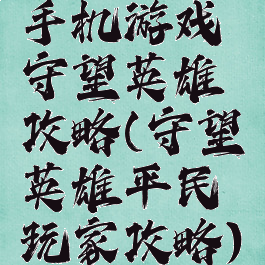 手机游戏
守望英雄
攻略(守望
英雄平民
玩家攻略)